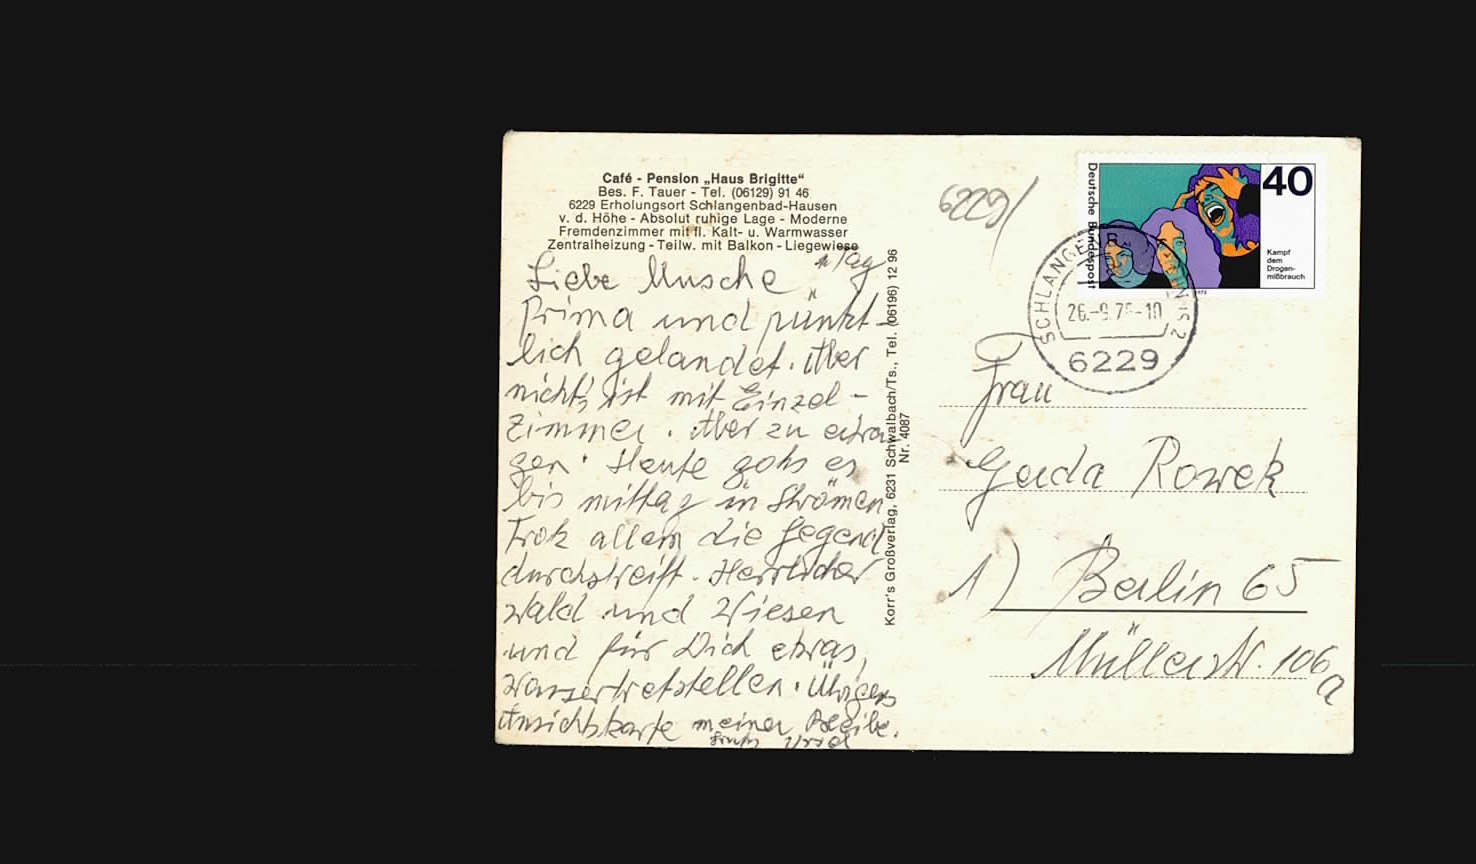 Café - Pension „Haus Brigitte“
Bes. F. Tauer - Tel. (06129) 91 46
6229 Erholungsort Schlangenbad-Hausen
v. d. Höhe - Absolut ruhige Lage - Moderne
Fremdenzimmer mit fl. Kalt- u. Warmwasser
Zentralheizung - Teilw. mit Balkon - Liegewiese
Tag
Liebe Musche
Prima und pünkt-
lich gelandet. Aber
nichts ist mit Einzel-
Zimmer. Aber zu ertra
gen. Heute gohs es
bis mittag in Strömen
Trotz allem die Gegend
durchstreift. Herrlicher
Wald und Wiesen
und für Dich etwas,
Wassertretstellen. Übrigens
Ansichtskarte meiner Bleibe.
Gruß Ursel
Korr's Großverlag, 6231 Schwalbach/Ts., Tel. (06196) 12 96
Nr. 4087
6229
Deutsche Bundespost
40
Kampf
dem
Drogen-
mißbrauch
26.-9.75-10
6229
Frau
Gerda Rowek
1) Berlin 65
Müllerstr. 106a